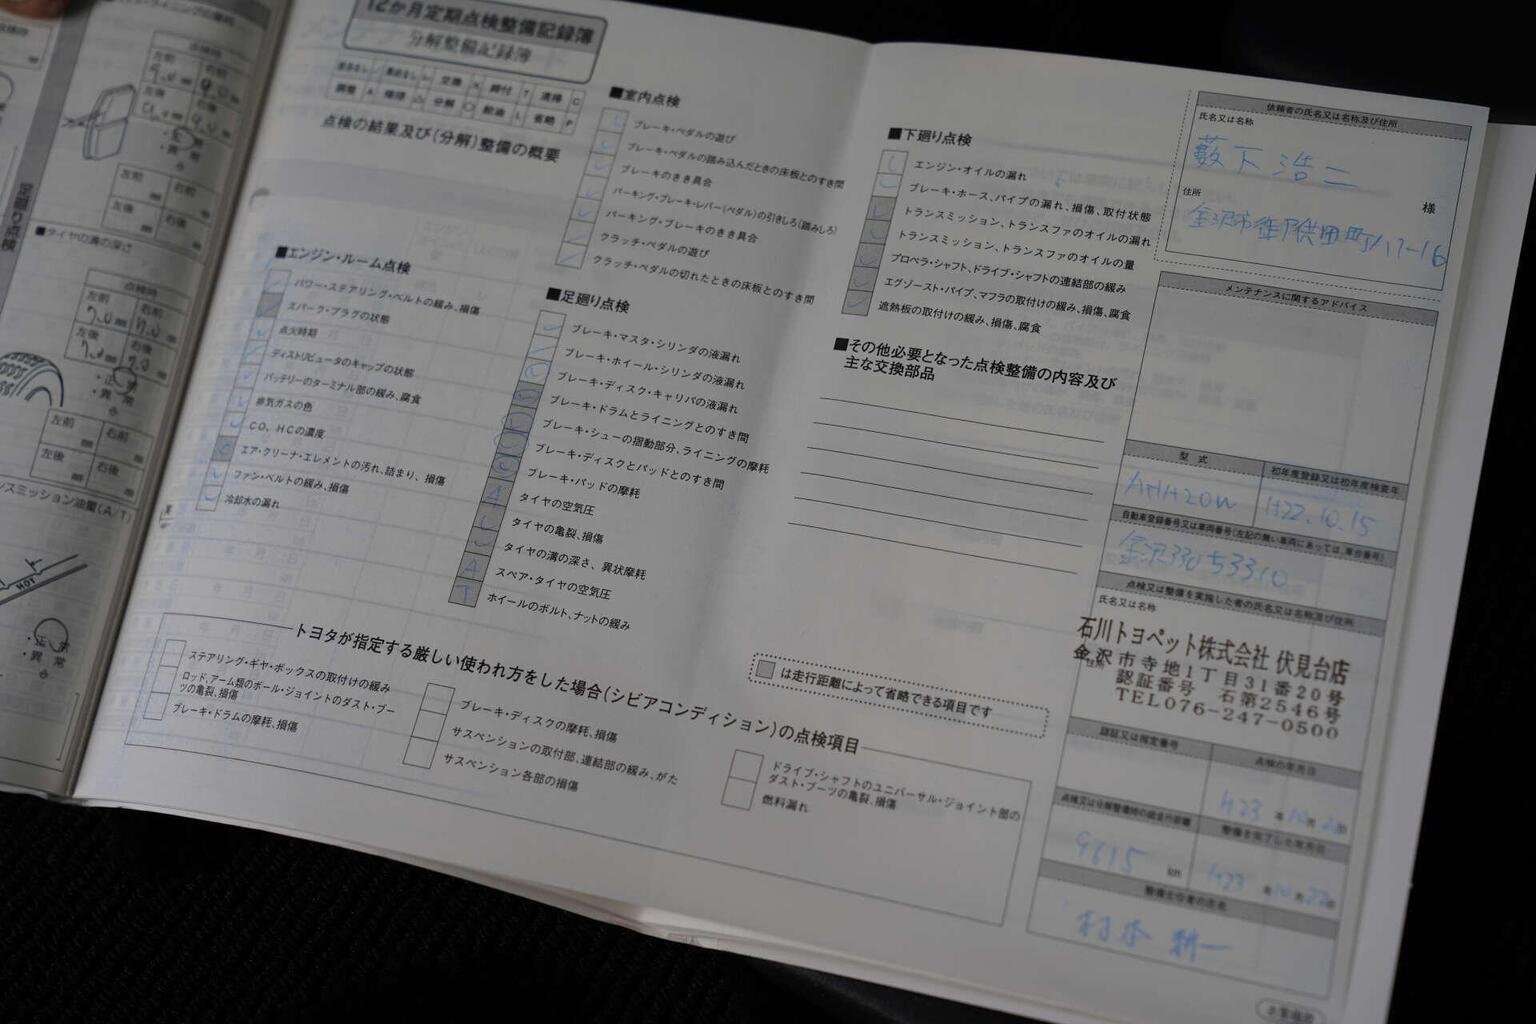 点検時
左前
右前
左後
右後
左前
右前
左後
右後
■タイヤの溝の深さ
点検時
左前
右前
左後
右後
左前
右前
左後
右後
HOT
12か月定期点検整備記録簿
分解整備記録簿
交換
締付 T
清掃 C
調整 A
分解
給油 L
省略 P
点検の結果及び(分解)整備の概要
■エンジン・ルーム点検
パワー・ステアリング・ベルトの緩み、損傷
スパーク・プラグの状態
点火時期
ディストリビュータのキャップの状態
バッテリーのターミナル部の緩み、腐食
排気ガスの色
CO、HCの濃度
エア・クリーナ・エレメントの汚れ、詰まり、損傷
ファン・ベルトの緩み、損傷
冷却水の漏れ
■室内点検
ブレーキ・ペダルの遊び
ブレーキ・ペダルの踏み込んだときの床板とのすき間
ブレーキのきき具合
パーキング・ブレーキ・レバー(ペダル)の引きしろ(踏みしろ)
パーキング・ブレーキのきき具合
クラッチ・ペダルの遊び
クラッチ・ペダルの切れたときの床板とのすき間
■足廻り点検
ブレーキ・マスタ・シリンダの液漏れ
ブレーキ・ホイール・シリンダの液漏れ
ブレーキ・ディスク・キャリパの液漏れ
ブレーキ・ドラムとライニングとのすき間
ブレーキ・シューの摺動部分、ライニングの摩耗
ブレーキ・ディスクとパッドとのすき間
ブレーキ・パッドの摩耗
A タイヤの空気圧
タイヤの亀裂、損傷
タイヤの溝の深さ、異状摩耗
A スペア・タイヤの空気圧
T ホイールのボルト、ナットの緩み
■下廻り点検
エンジン・オイルの漏れ
ブレーキ・ホース、パイプの漏れ、損傷、取付状態
トランスミッション、トランスファのオイルの漏れ
トランスミッション、トランスファのオイルの量
プロペラ・シャフト、ドライブ・シャフトの連結部の緩み
エグゾースト・パイプ、マフラの取付けの緩み、損傷、腐食
遮熱板の取付けの緩み、損傷、腐食
■その他必要となった点検整備の内容及び
主な交換部品
は走行距離によって省略できる項目です
トヨタが指定する厳しい使われ方をした場合(シビアコンディション)の点検項目
ステアリング・ギヤ・ボックスの取付けの緩み
ロッド、アーム類のボール・ジョイントのダスト・ブー
ツの亀裂、損傷
ブレーキ・ドラムの摩耗、損傷
ブレーキ・ディスクの摩耗、損傷
サスペンションの取付部、連結部の緩み、がた
サスペンション各部の損傷
ドライブ・シャフトのユニバーサル・ジョイント部の
ダスト・ブーツの亀裂、損傷
燃料漏れ
依頼者の氏名又は名称及び住所
氏名又は名称
藪下浩二
様
住所
金沢市
メンテナンスに関するアドバイス
型式
初年度登録又は初年度検査年
H22.10.15
自動車登録番号又は車両番号(左記の無い車両にあっては、車台番号)
金沢330 53310
点検又は整備を実施した者の氏名又は名称及び住所
氏名又は名称
石川トヨペット株式会社 伏見台店
金沢市寺地1丁目31番20号
認証番号 石第2546号
TEL076-247-0500
認証又は指定番号
点検の年月日
点検又は分解整備時の総走行距離
整備を完了した年月日
9615 km
整備主任者の氏名